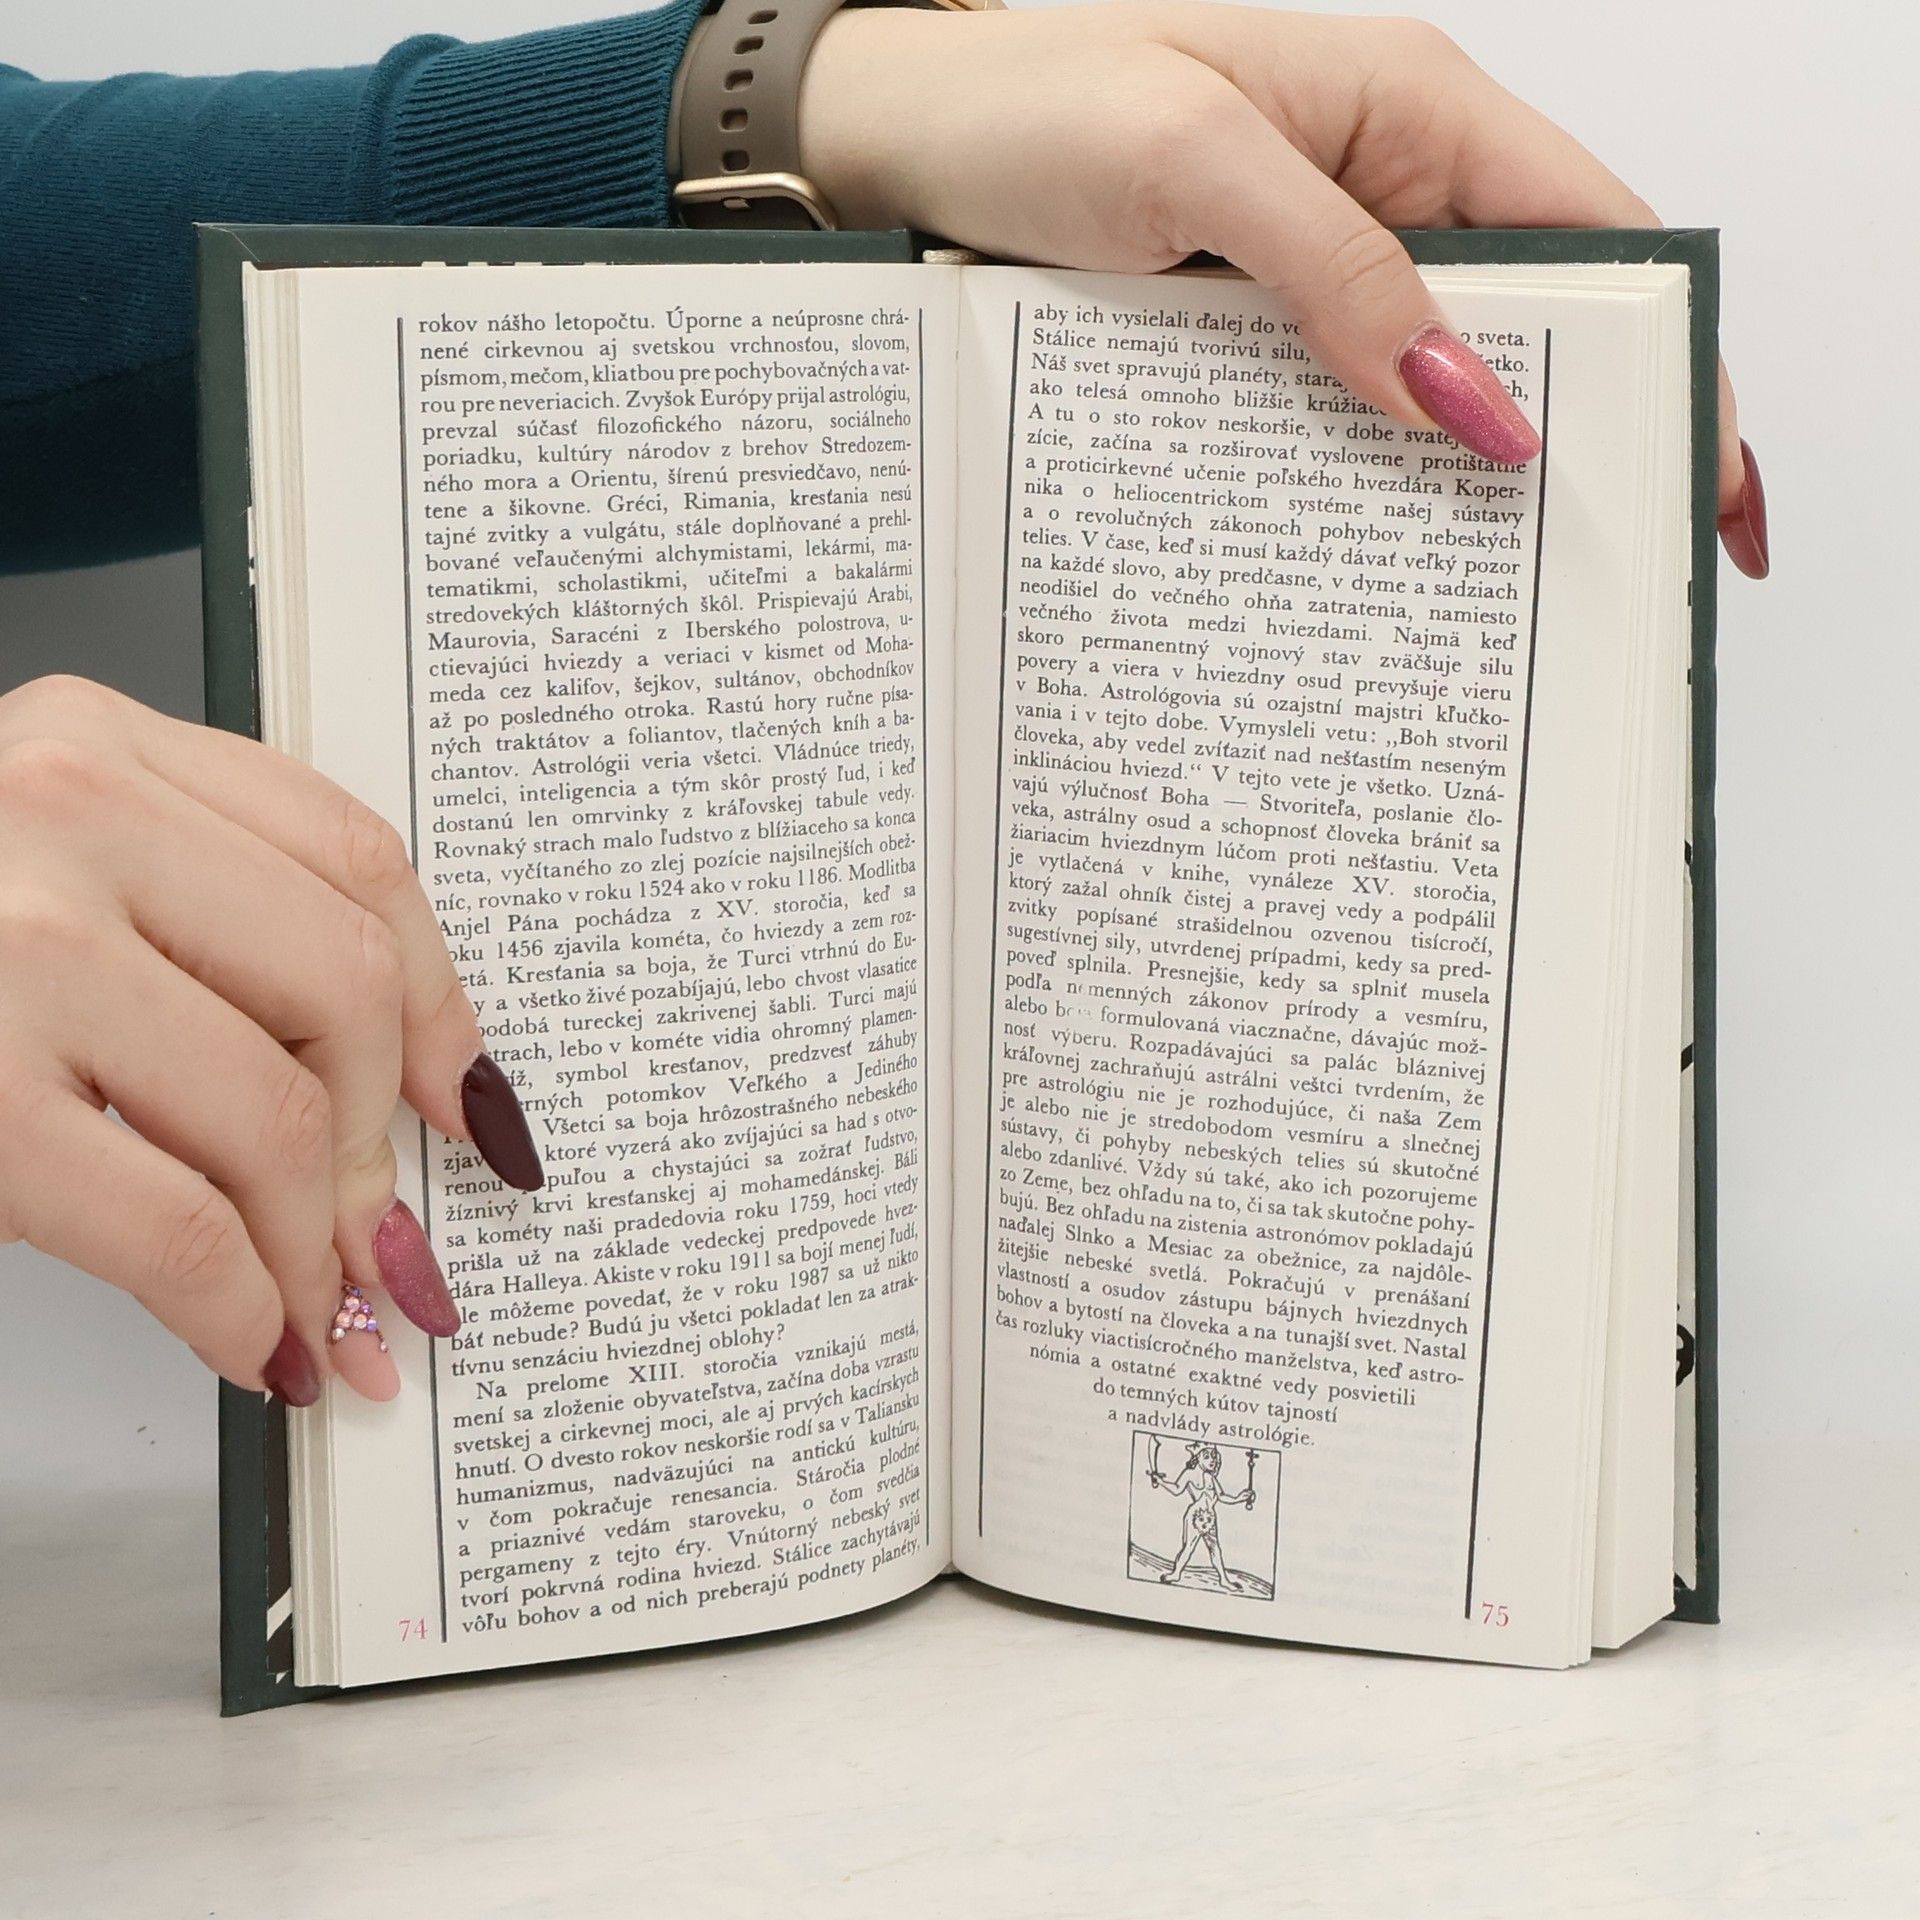 rokov nášho letopočtu. Úporne a neúprosne chrá-
nené cirkevnou aj svetskou vrchnosťou, slovom,
písmom, mečom, kliatbou pre pochybovačných a vat-
rou pre neveriacich. Zvyšok Európy prijal astrológiu,
prevzal súčasť filozofického názoru, sociálneho
poriadku, kultúry národov z brehov Stredozem-
ného mora a Orientu, šírenú presviedčavo, nenú-
tene a šikovne. Gréci, Rimania, kresťania nesú
tajné zvitky a vulgátu, stále doplňované a prehl-
bované veľaučenými alchymistami, lekármi, ma-
tematikmi, scholastikmi, učiteľmi a bakalármi
stredovekých kláštorných škôl. Prispievajú Arabi,
Maurovia, Saracéni z Iberského polostrova, u-
ctievajúci hviezdy a veriaci v kismet od Moha-
meda cez kalifov, šejkov, sultánov, obchodníkov
až po posledného otroka. Rastú hory ručne písa-
ných traktátov a foliantov, tlačených kníh a ba-
chantov. Astrológii veria všetci. Vládnúce triedy,
umelci, inteligencia a tým skôr prostý ľud, i keď
dostanú len omrvinky z kráľovskej tabule vedy.
Rovnaký strach malo ľudstvo z blížiaceho sa konca
sveta, vyčítaného zo zlej pozície najsilnejších obež-
níc, rovnako v roku 1524 ako v roku 1186. Modlitba
Anjel Pána pochádza z XV. storočia, keď sa
oku 1456 zjavila kométa, čo hviezdy a zem roz-
etá. Kresťania sa boja, že Turci vtrhnú do Eu-
y a všetko živé pozabíjajú, lebo chvost vlasatice
podobá tureckej zakrivenej šabli. Turci majú
strach, lebo v kométe vidia ohromný plamen-
íž, symbol kresťanov, predzvesť záhuby
erných potomkov Veľkého a Jediného
Všetci sa boja hrôzostrašného nebeského
zjav ktoré vyzerá ako zvíjajúci sa had s otvo-
renou apuľou a chystajúci sa zožrať ľudstvo,
žíznivý krvi kresťanskej aj mohamedánskej. Báli
sa kométy naši pradedovia roku 1759, hoci vtedy
prišla už na základe vedeckej predpovede hvez-
dára Halleya. Akiste v roku 1911 sa bojí menej ľudí,
ale môžeme povedať, že v roku 1987 sa už nikto
báť nebude? Budú ju všetci pokladať len za atrak-
tívnu senzáciu hviezdnej oblohy?
Na prelome XIII. storočia vznikajú mestá,
mení sa zloženie obyvateľstva, začína doba vzrastu
svetskej a cirkevnej moci, ale aj prvých kacírskych
hnutí. O dvesto rokov neskoršie rodí sa v Taliansku
humanizmus, nadväzujúci na antickú kultúru,
v čom pokračuje renesancia. Stáročia plodné
a priaznivé vedám staroveku, o čom svedčia
pergameny z tejto éry. Vnútorný nebeský svet
tvorí pokrvná rodina hviezd. Stálice zachytávajú
vôľu bohov a od nich preberajú podnety planéty,
74
aby ich vysielali ďalej do o sveta.
Stálice nemajú tvorivú silu, etko.
Náš svet spravujú planéty,
ako telesá omnoho bližšie
A tu o sto rokov neskoršie, v dobe svätej
zície, začína sa rozširovať vyslovene protištátne
a proticirkevné učenie poľského hvezdára Koper-
nika o heliocentrickom systéme našej sústavy
a o revolučných zákonoch pohybov nebeských
telies. V čase, keď si musí každý dávať veľký pozor
na každé slovo, aby predčasne, v dyme a sadziach
neodišiel do večného ohňa zatratenia, namiesto
večného života medzi hviezdami. Najmä keď
skoro permanentný vojnový stav zväčšuje silu
povery a viera v hviezdny osud prevyšuje vieru
v Boha. Astrológovia sú ozajstní majstri kľučko-
vania i v tejto dobe. Vymysleli vetu: „Boh stvoril
človeka, aby vedel zvíťaziť nad nešťastím neseným
inklináciou hviezd.“ V tejto vete je všetko. Uzná-
vajú výlučnosť Boha — Stvoriteľa, poslanie člo-
veka, astrálny osud a schopnosť človeka brániť sa
žiariacim hviezdnym lúčom proti nešťastiu. Veta
je vytlačená v knihe, vynáleze XV. storočia,
ktorý zažal ohník čistej a pravej vedy a podpálil
zvitky popísané strašidelnou ozvenou tisícročí,
sugestívnej sily, utvrdenej prípadmi, kedy sa pred-
poveď splnila. Presnejšie, kedy sa splniť musela
podľa nemenných zákonov prírody a vesmíru,
alebo bola formulovaná viacznačne, dávajúc mož-
nosť výberu. Rozpadávajúci sa palác bláznivej
kráľovnej zachraňujú astrálni veštci tvrdením, že
pre astrológiu nie je rozhodujúce, či naša Zem
je alebo nie je stredobodom vesmíru a slnečnej
sústavy, či pohyby nebeských telies sú skutočné
alebo zdanlivé. Vždy sú také, ako ich pozorujeme
zo Zeme, bez ohľadu na to, či sa tak skutočne pohy-
bujú. Bez ohľadu na zistenia astronómov pokladajú
naďalej Slnko a Mesiac za obežnice, za najdôle-
žitejšie nebeské svetlá. Pokračujú v prenášaní
vlastností a osudov zástupu bájnych hviezdnych
bohov a bytostí na človeka a na tunajší svet. Nastal
čas rozluky viactisícročného manželstva, keď astro-
nómia a ostatné exaktné vedy posvietili
do temných kútov tajností
a nadvlády astrológie.
75